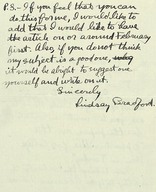 P.S.-If you feel that you can
do this for me, I would like to
add that I would like to have
the article on or around February
first. Also, if you do not think
my subject is a good one,
it would be alright to suggest one
yourself and write on it.
Sincerely
Lindsay Crawford.